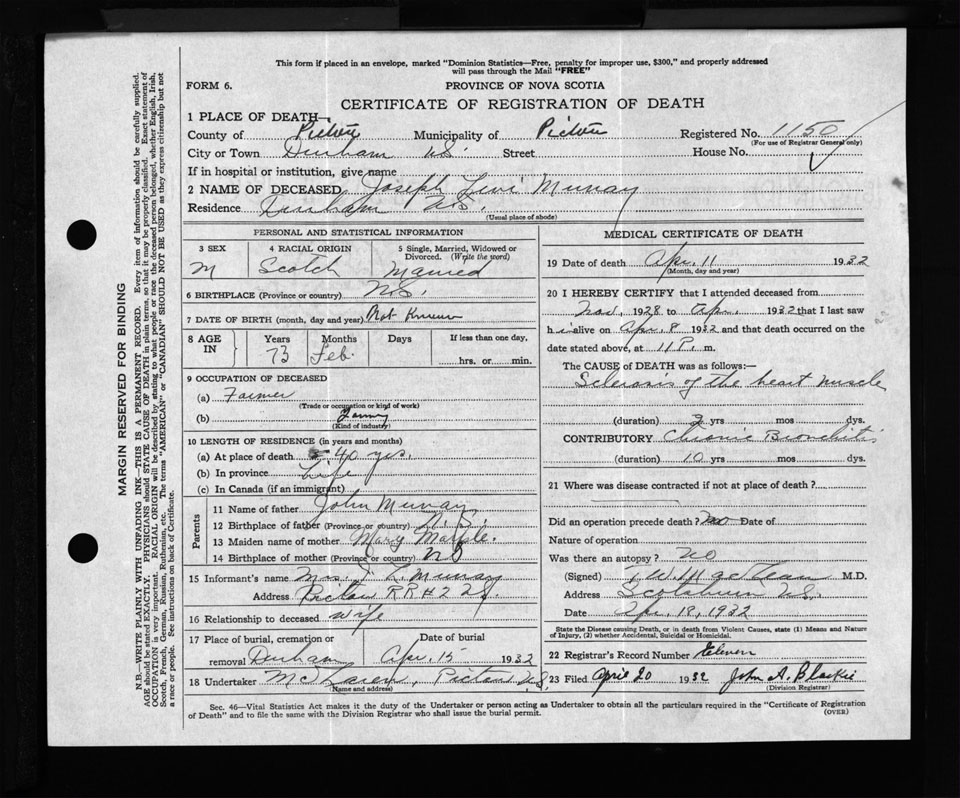 This form if placed in an envelope, marked "Dominion Statistics—Free, penalty for improper use, $300," and properly addressed
will pass through the Mail "FREE"
FORM 6.
PROVINCE OF NOVA SCOTIA
CERTIFICATE OF REGISTRATION OF DEATH
1 PLACE OF DEATH—
County of Pictou Municipality of Pictou Registered No. 1150
(For use of Registrar General only)
City or Town Durham N.S. Street House No.
If in hospital or institution, give name
2 NAME OF DECEASED Joseph Levi Murray
Residence Durham N.S.
(Usual place of abode)
PERSONAL AND STATISTICAL INFORMATION
3 SEX 4 RACIAL ORIGIN 5 Single, Married, Widowed or Divorced. (Write the word)
M Scotch Married
6 BIRTHPLACE (Province or country) N.S.
7 DATE OF BIRTH (month, day and year) Not Known
8 AGE IN Years Months Days If less than one day,
73 Feb. hrs. or min.
9 OCCUPATION OF DECEASED
(a) Farmer
(Trade or occupation or kind of work)
(b) Farming
(Kind of industry)
10 LENGTH OF RESIDENCE (in years and months)
(a) At place of death 40 yrs.
(b) In province Life
(c) In Canada (if an immigrant)
Parents
11 Name of father John Murray
12 Birthplace of father (Province or country) N.S.
13 Maiden name of mother Mary Marple.
14 Birthplace of mother (Province or country) NS
15 Informant's name Mrs. J. L. Murray
Address Pictou RR#2 NS.
16 Relationship to deceased wife
17 Place of burial, cremation or Date of burial
removal Durham Apr. 15 1932
18 Undertaker McLaren, Pictou N.S.
(Name and address)
MEDICAL CERTIFICATE OF DEATH
19 Date of death Apr. 11 1932
(Month, day and year)
20 I HEREBY CERTIFY that I attended deceased from
Nov. 1928 to Apr. 1932 that I last saw
him alive on Apr. 8 1932 and that death occurred on the
date stated above, at 11 P. m.
The CAUSE of DEATH was as follows:—
Sclerosis of the heart muscle
(duration) yrs mos dys.
CONTRIBUTORY Chronic Bronchitis
(duration) 10 yrs mos dys.
21 Where was disease contracted if not at place of death?
Did an operation precede death? No Date of
Nature of operation
Was there an autopsy? No
(Signed) MacLean M.D.
Address Scotsburn N.S.
Date Apr. 19, 1932
State the Disease causing Death, or in death from Violent Causes, state (1) Means and Nature
of Injury, (2) whether Accidental, Suicidal or Homicidal.
22 Registrar's Record Number Eleven
23 Filed April 20 1932 John A. Blaikie
(Division Registrar)
Sec. 46—Vital Statistics Act makes it the duty of the Undertaker or person acting as Undertaker to obtain all the particulars required in the "Certificate of Registration
of Death" and to file the same with the Division Registrar who shall issue the burial permit.
(OVER)
MARGIN RESERVED FOR BINDING
N.B.—WRITE PLAINLY WITH UNFADING INK—THIS IS A PERMANENT RECORD. Every item of information should be carefully supplied.
AGE should be stated EXACTLY. PHYSICIANS should STATE CAUSE OF DEATH in plain terms, so that it may be properly classified. Exact statement of
OCCUPATION is very important. RACIAL ORIGIN will be described by stating to what people or race the deceased person belonged, whether English, Irish,
Scotch, French, German, Russian, Ruthenian, etc. The terms "AMERICAN" or "CANADIAN" SHOULD NOT BE USED as they express citizenship but not
a race or people. See instructions on back of Certificate.